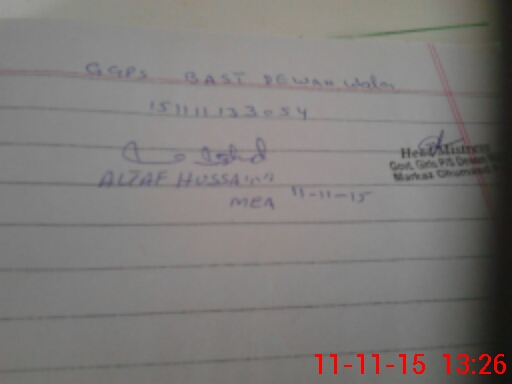 GGPS BAST DEWAN wala
151111133054
ALTAF HUSSAIN
MEA 11-11-15
Head Mistress
Govt. Girls P/S Dewan
Markaz
11-11-15 13:26